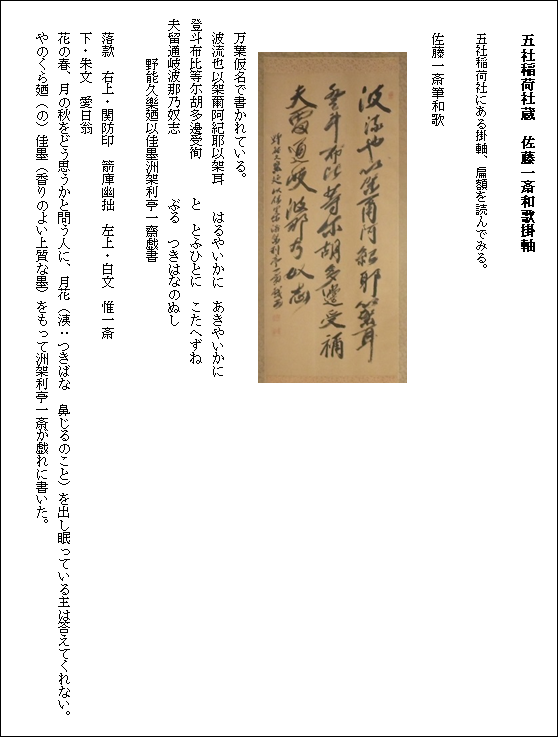 五社稲荷社蔵　佐藤一斎和歌掛軸
五社稲荷社にある掛軸、扁額を読んでみる。
佐藤一斎筆和歌
万葉仮名で書かれている。
波流也以架爾阿紀耶以架耳　はるやいかに　あきやいかに
登斗布比等尓胡多邊受徇　と　とふひとに　こたへずね
夫留通岐波那乃奴志　ぶる　つきはなのぬし
野能久樂廼以佳墨洲架利亭一齋戯書
落款　右上・関防印　箭庫幽拙　左上・白文　惟一斎
下・朱文　愛日翁
花の春、月の秋をどう思うかと問う人に、月花（洟：つきばな　鼻じるのこと）を出し眠っている主は答えてくれない。
やのくら廼（の）佳墨（香りのよい上質な墨）をもって洲架利亭一斎が戯れに書いた。